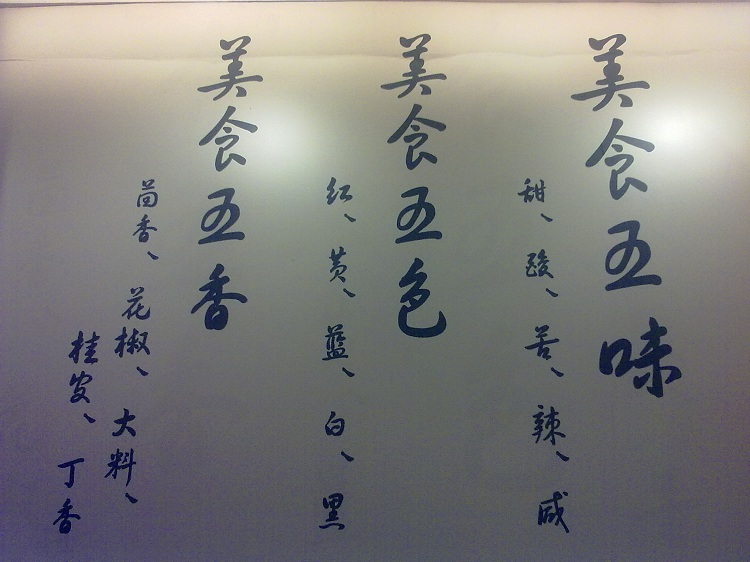 美食五味
甜、酸、苦、辣、咸
美食五色
红、黄、蓝、白、黑
美食五香
茴香、花椒、大料、
桂皮、丁香